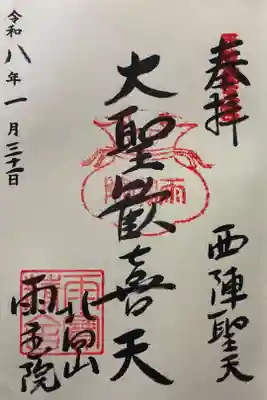 奉拝
西陣聖天
大聖歡喜天
北向山
雨宝院
令和八年一月三十一日